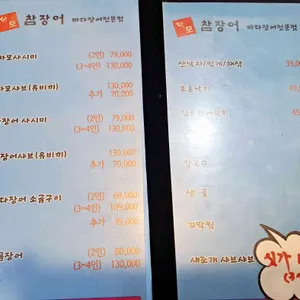 하모 참장어 바다장어전문점
하모사시미 (2인) 79,000
(3~4인) 130,000
하모샤브(유비끼) 130,000
추가 70,000
장어 사시미 (2인) 79,000
(3~4인) 130,000
장어샤브(유비끼) 130,000
추가 70,000
바다장어 소금구이 (2인) 68,000
(3~4인) 109,000
추가 35,000
곰장어 (2인) 80,000
(3~4인) 130,000
하모 참장어 바다장어전문점
산낙지/멍게/해삼
칼국수
꼬막찜
새조개 샤브샤브
싯가